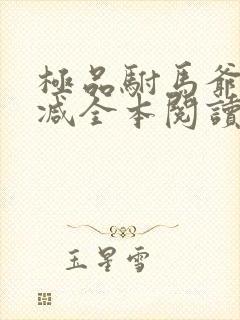 極品駙馬爺
减全本閱讀
玉星雪